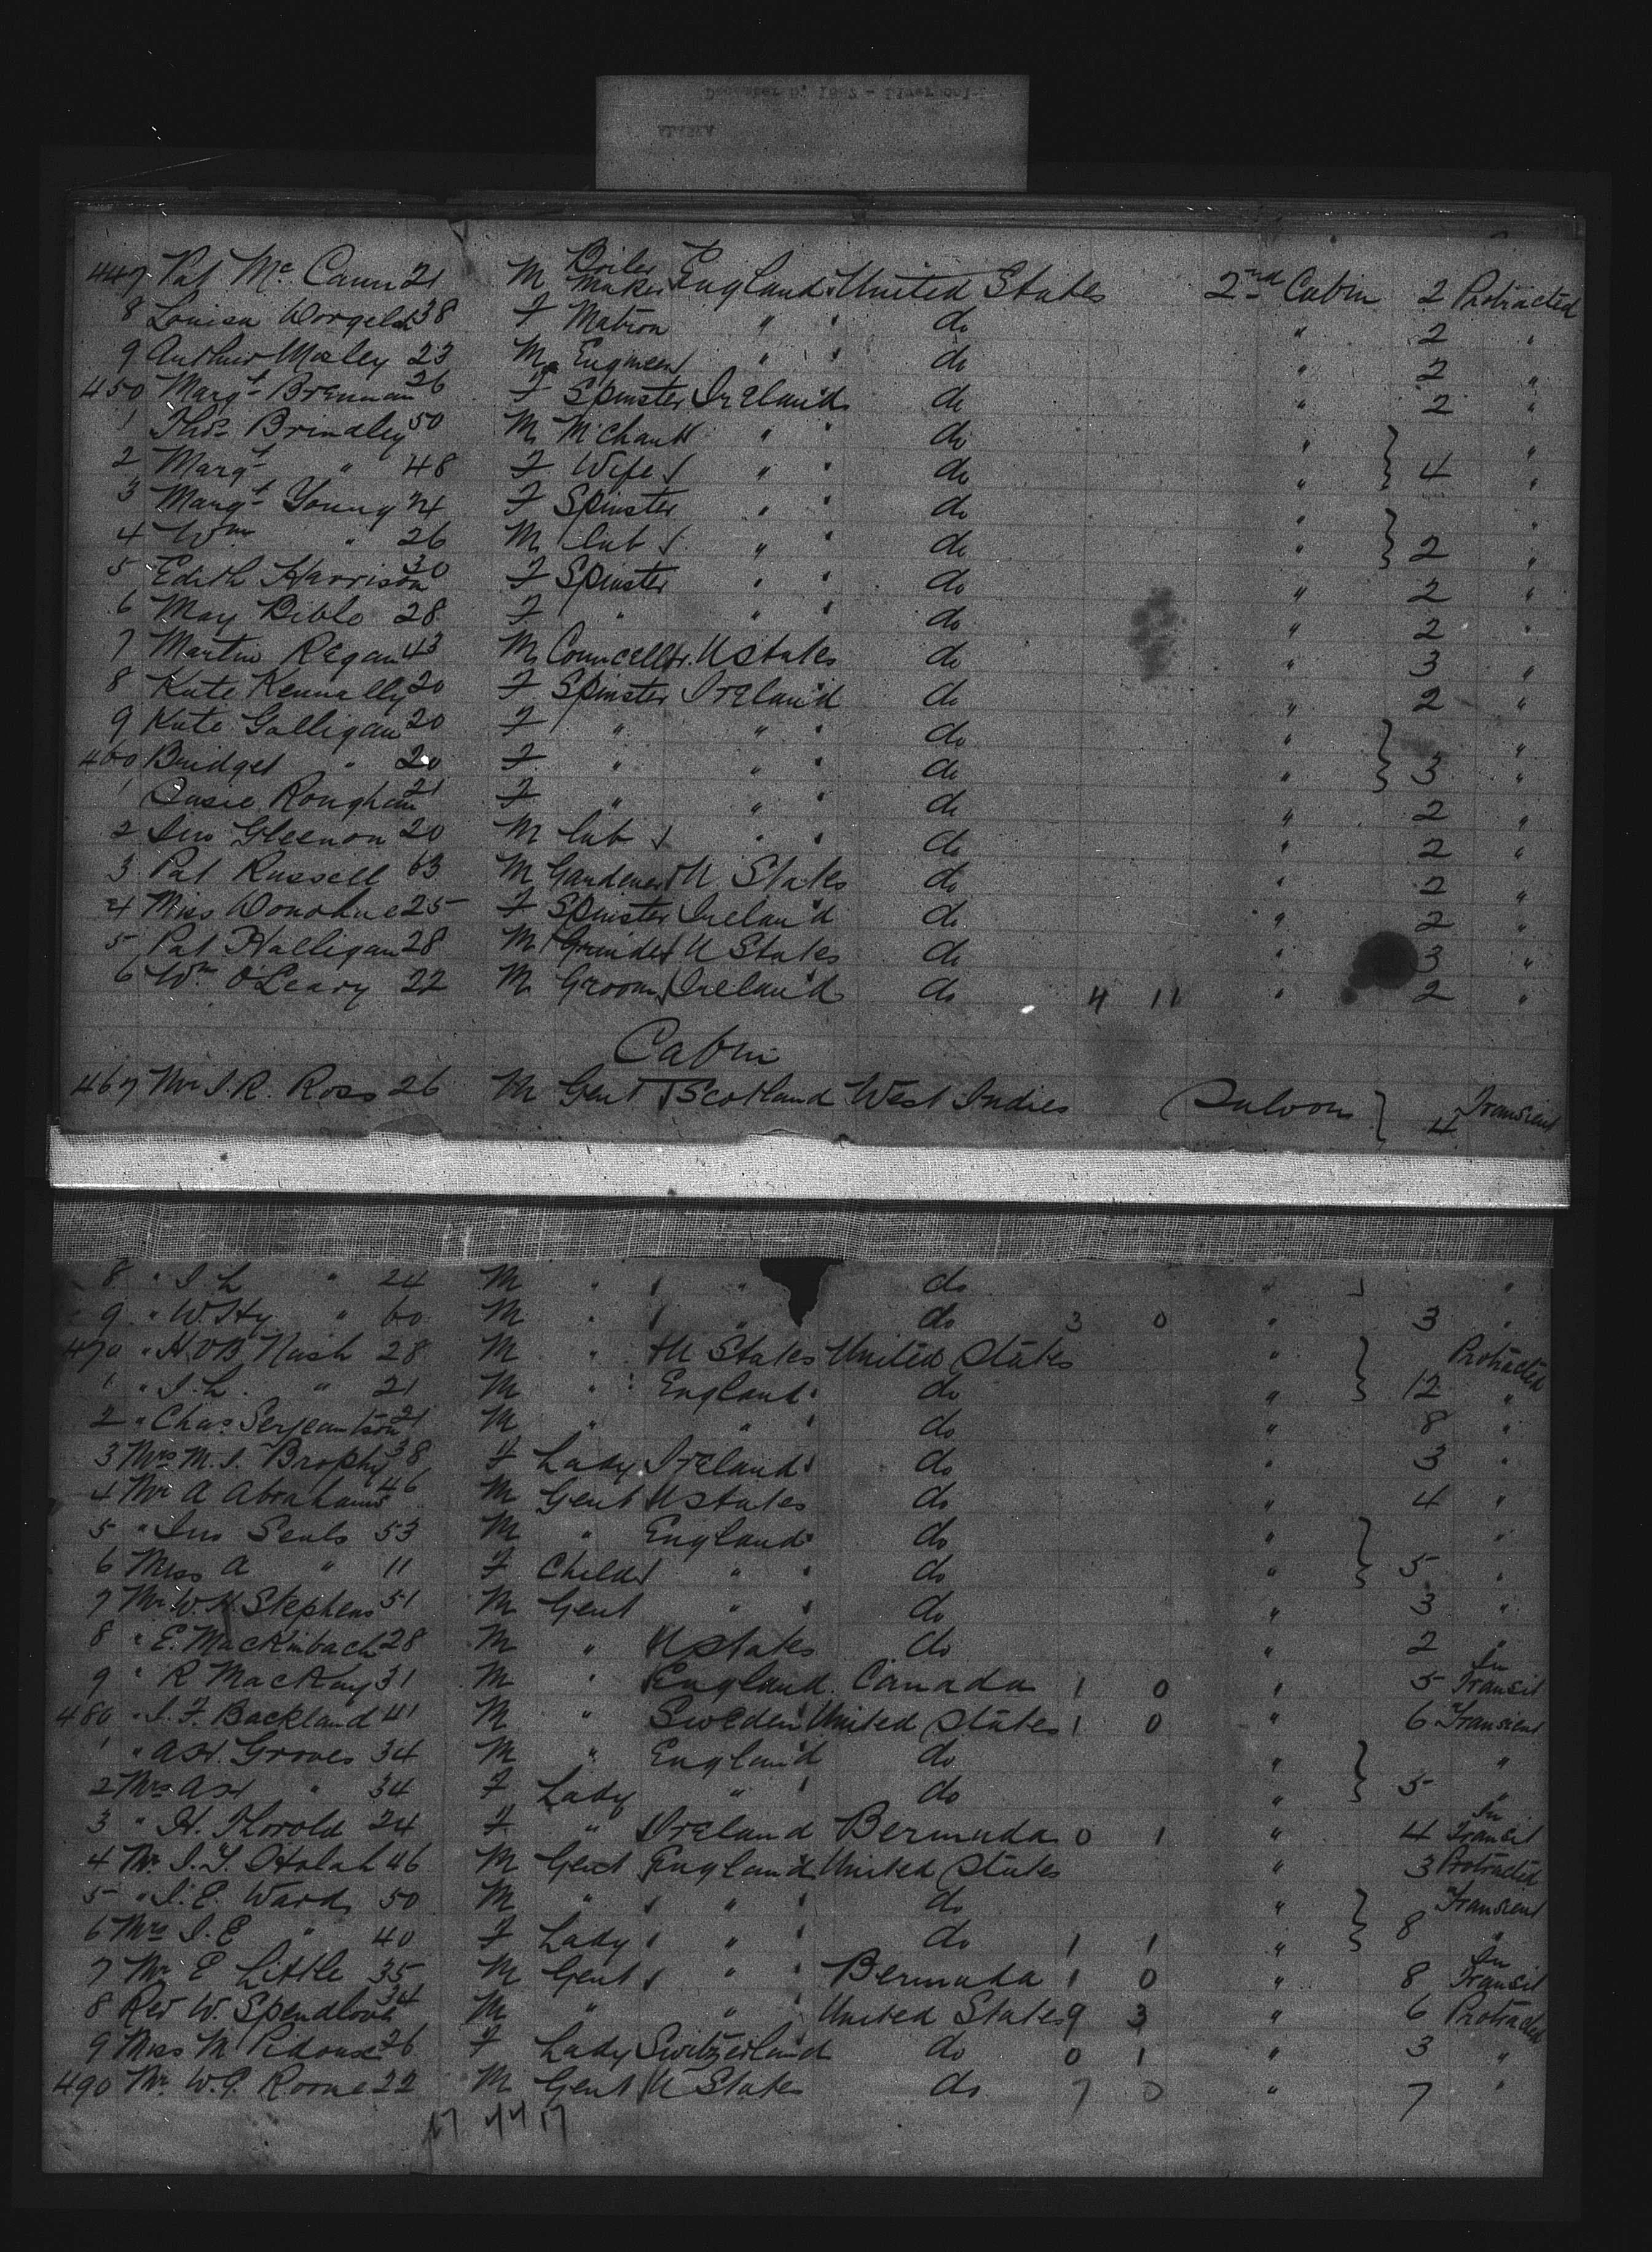 447 Pat McCann 21 M Boiler Maker England United States 2nd Cabin 2 Protracted
8 Louisa 38 F Matron " " do " 2 "
9 Arthur Mosley 23 M Engineer " " do " 2 "
450 Margt Brennan 26 F Spinster Ireland do " 2 "
1 Thos Brindley 50 M Mchant " " do " "
2 Margt " 48 F Wife " " do " 4 "
3 Margt Young 24 F Spinster " " do " "
4 Wm " 26 M Lab " " do " 2 "
5 Edith Harrison 30 F Spinster " " do " 2 "
6 May 28 F " " " do " 2 "
7 Martin Regan 43 M Councellor U States do " 3 "
8 Kate Kennally 20 F Spinster Ireland do " 2 "
9 Kate Galligan 20 F " " " do " "
460 Bridget " 20 F " " " do " 3 "
1 Susie 21 F " " " do " 2 "
2 Jno Gleenon 20 M Lab " " do " 2 "
3 Pat Russell 63 M Gardener U States do " 2 "
4 Miss Donohue 25 F Spinster Ireland do " 2 "
5 Pat Halligan 28 M Grinder U States do " 3 "
6 Wm O'Leary 22 M Groom Ireland do 4 11 " 2 "
Cabin
467 Mr J.R. Ross 26 M Gent Scotland West Indies Saloon 4 Transient
8 " J.L " 24 M " " do " "
9 " W.Hy " 60 M " " do 3 0 " 3 "
470 " H.O'B Nash 28 M " U States United States " Protracted
1 " J.L. " 21 M " England do " 12 "
2 " Chas Serjeantson 21 M " " " do " 8 "
3 Mrs M.J. Brophy 38 F Lady Ireland do " 3 "
4 Mr A Abrahams 46 M Gent U States do " 4 "
5 " Jno 53 M " England do " "
6 Miss A " 11 F Child " " do " 5 "
7 Mr W.H Stephens 51 M Gent " " do " 3 "
8 " E. Mackinbach 28 M " U States do " 2 "
9 " R MacKay 31 M " England Canada 1 0 " 5 In Transit
480 " J.F. Backland 41 M " Sweden United States 1 0 " 6 Transient
1 " A.H. Groves 34 M " England do " "
2 Mrs A.H " 34 F Lady " " do " 5 "
3 " H. Thorold 24 F " Ireland Bermuda 0 1 " 4 In Transit
4 Mr J.Y. 46 M Gent England United States " 3 Protracted
5 " J.E. Ward 50 M " " " do " Transient
6 Mrs J.E " 40 F Lady " " do 1 1 " 8 "
7 Mr E Little 35 M Gent " " Bermuda 1 0 " 8 In Transit
8 Rev W. Spendlove 34 M " " " United States 9 3 " 6 Protracted
9 Miss M Pidoux 26 F Lady Switzerland do 0 1 " 3 "
490 Mr W.P. 22 M Gent U States do 7 0 " 7 "
17 44 17